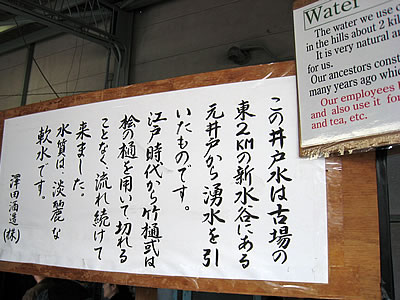 この井戸水は古場の
東２KMの新水谷にある
元井戸から湧水を引
いたものです。
江戸時代から竹樋或は
桧の樋を用いて切れる
ことなく、流れ続けて
来ました。
水質は、淡麗な
軟水です。
澤田酒造(株)
Water
The water we use c
in the hills about 2 kil
It is very natural a
for us.
Our ancestors const
many years ago which
Our employees
and also use it for
and tea, etc.